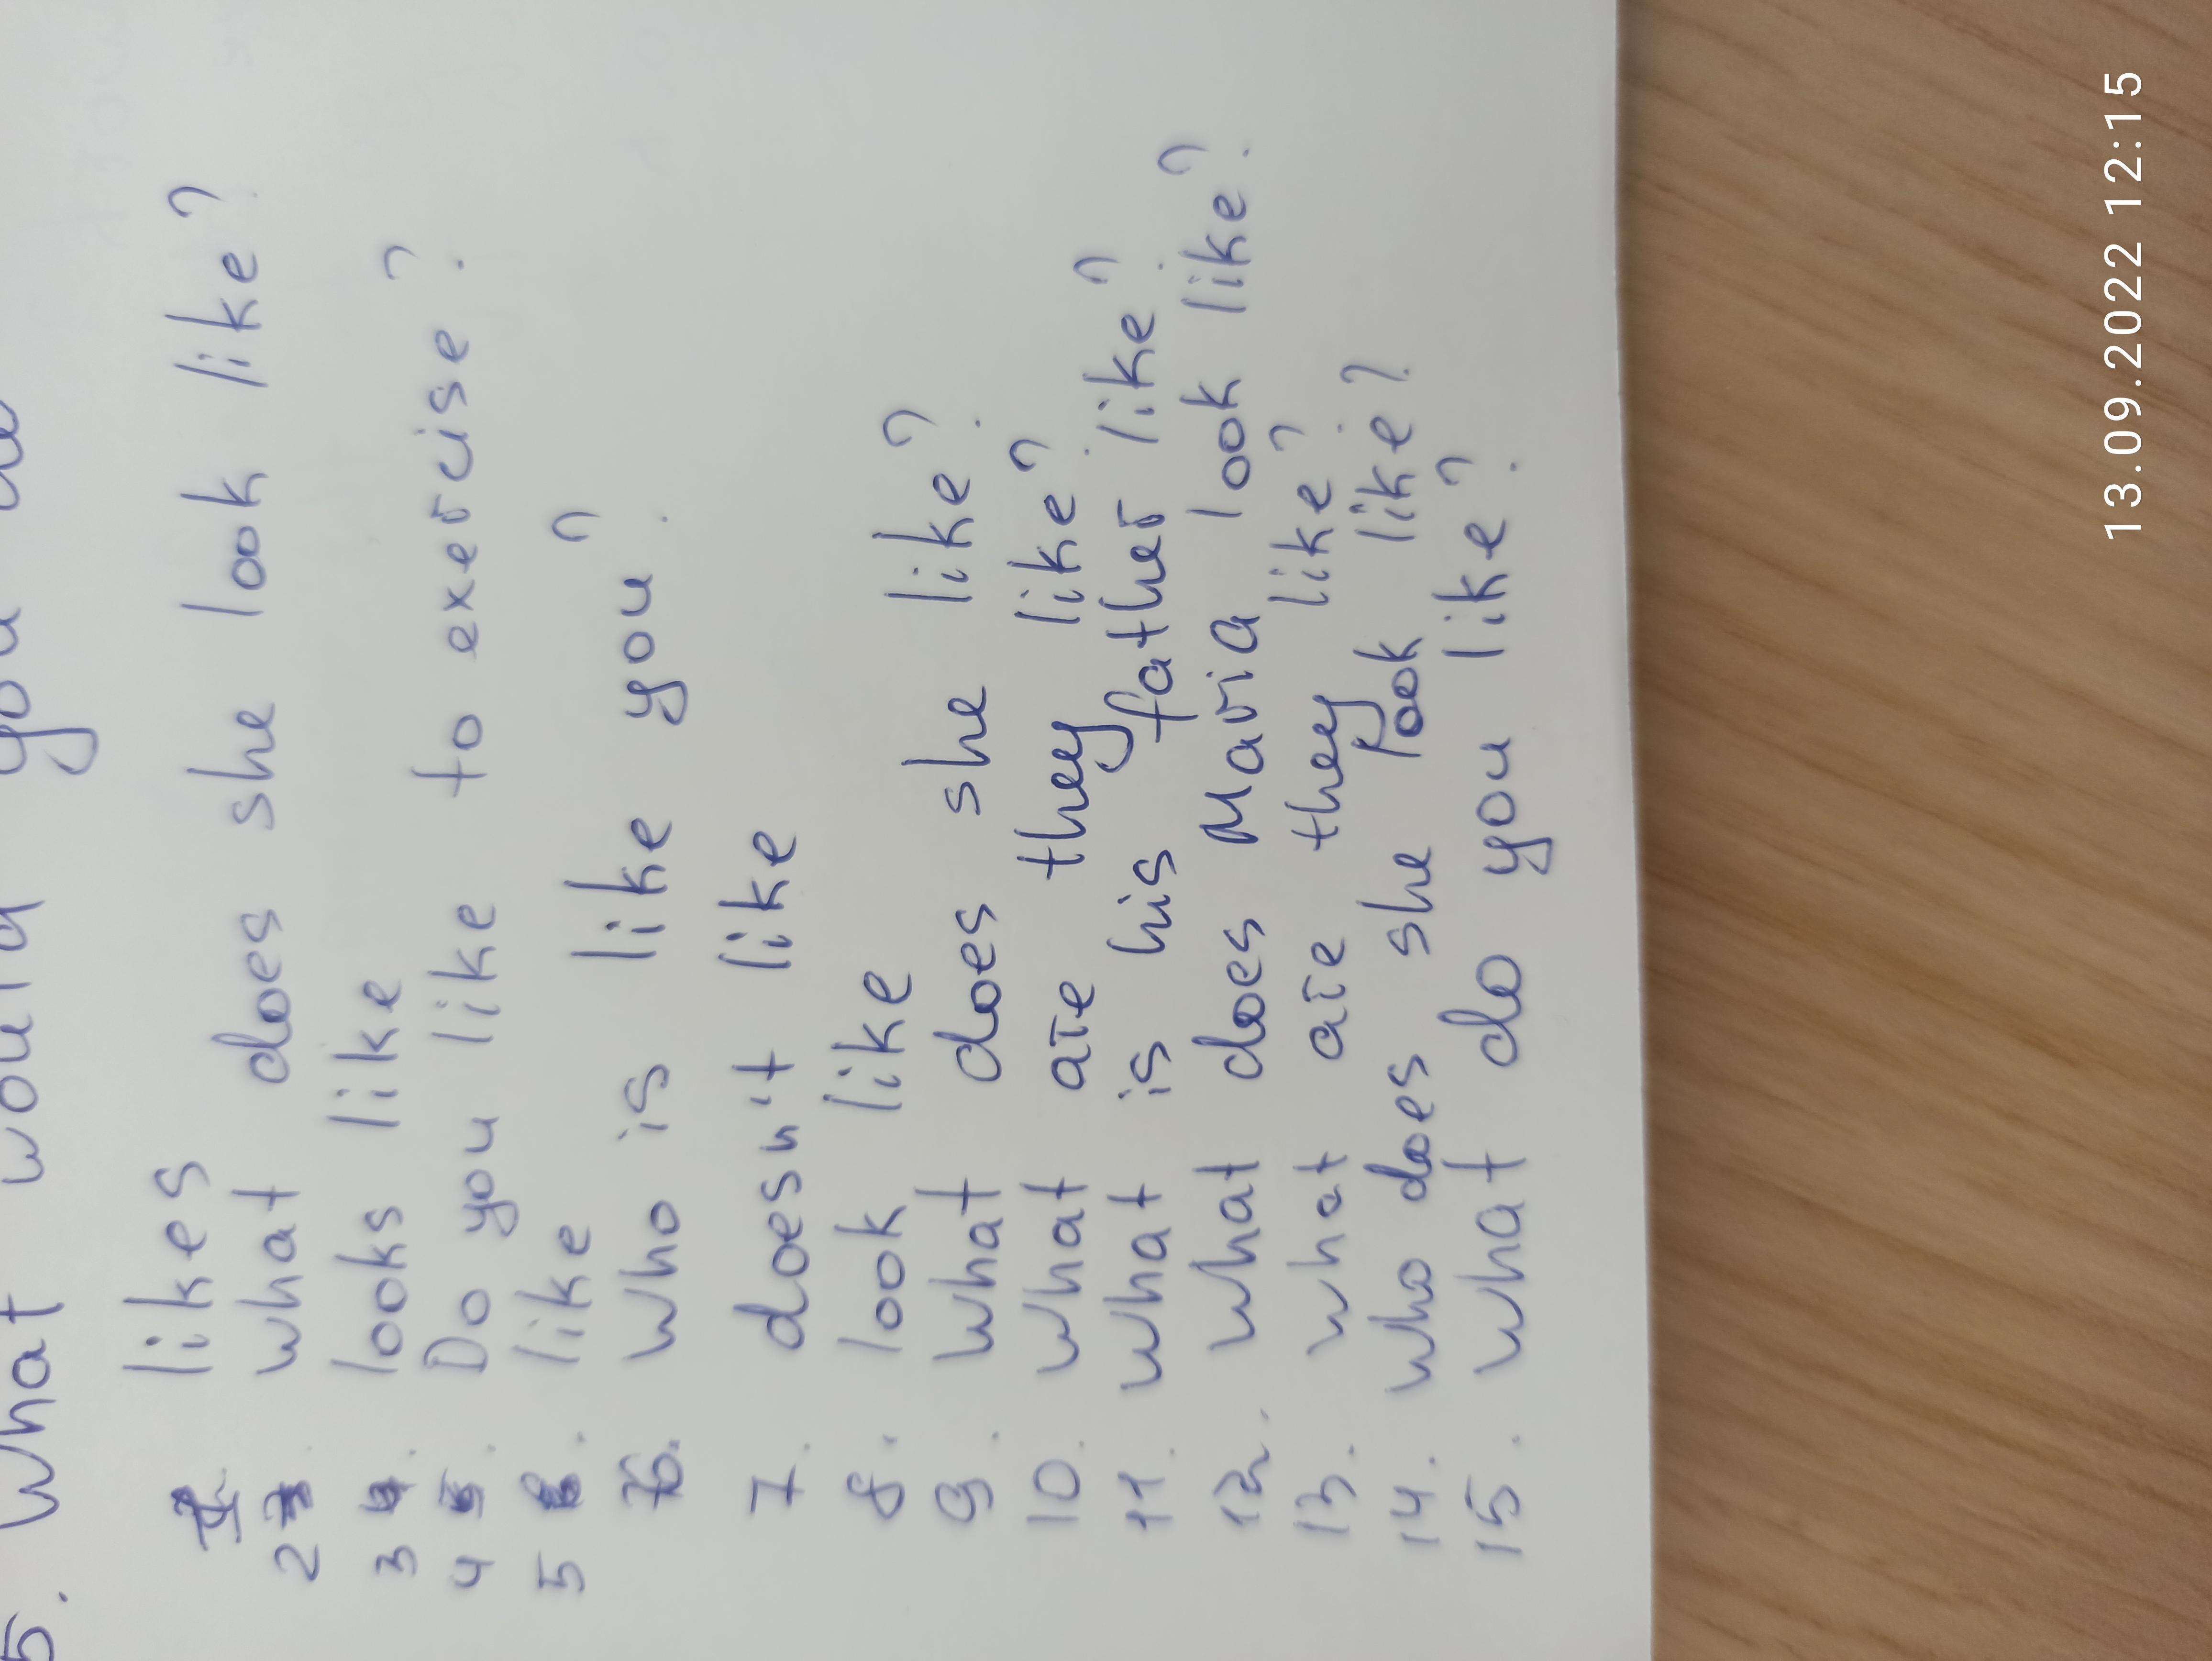 5. What would you
1. likes
2. what does she look like?
3. looks like
4. Do you like to exercise?
5. like
6. who is like you?
7. doesn't like
8. look like
9. what does she like?
10. what are they like?
11. what is his father like?
12. what does Maria look like?
13. what are they like?
14. who does she look like?
15. what do you like?
13.09.2022 12:15